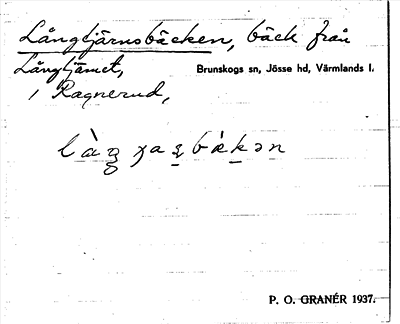 Långtjärnsbäcken, bäck från
Långtjärnet, Brunskogs sn, Jösse hd, Värmlands l.
i Ragnerud,
P. O. GRANÉR 1937.